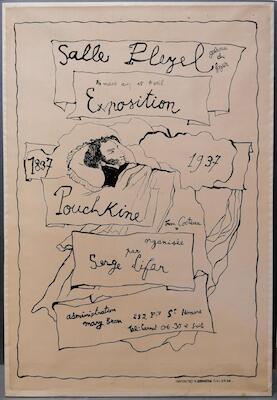 Salle Pleyel
galerie du foyer
Exposition
1837
1937
Pouchkine
Jean Cocteau
organisée
par
Serge Lifar
administration
mary Bran
252 Fbg St Honoré